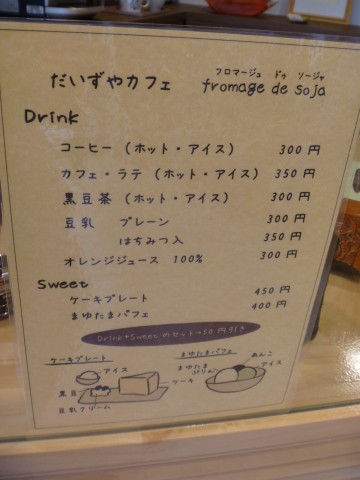 フロマージュ ドゥ ソージャ
だいずやカフェ fromage de soja
Drink
コーヒー (ホット・アイス) 300 円
カフェ・ラテ (ホット・アイス) 350 円
黒豆茶 (ホット・アイス) 300 円
豆乳 プレーン 300 円
はちみつ入 350 円
オレンジジュース 100% 300 円
Sweet
ケーキプレート 450 円
まゆたまパフェ 400 円
Drink+Sweet のセット→50円引き
ケーキプレート まゆたまパフェ
アイス
黒豆
豆乳クリーム
ケーキ
まゆたま
ぷりん
あんこ
アイス